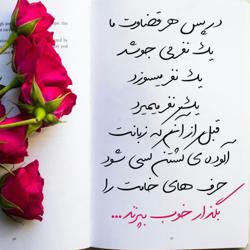 در پس هر قضاوت ما
یک نفر می جوشد
یک نفر میسوزد
یک نفر میمیرد
قبل از آنکه زبانت
آلوده ی کشتن کسی شود
حرف های خامت را
بگذار خوب بپزند ...